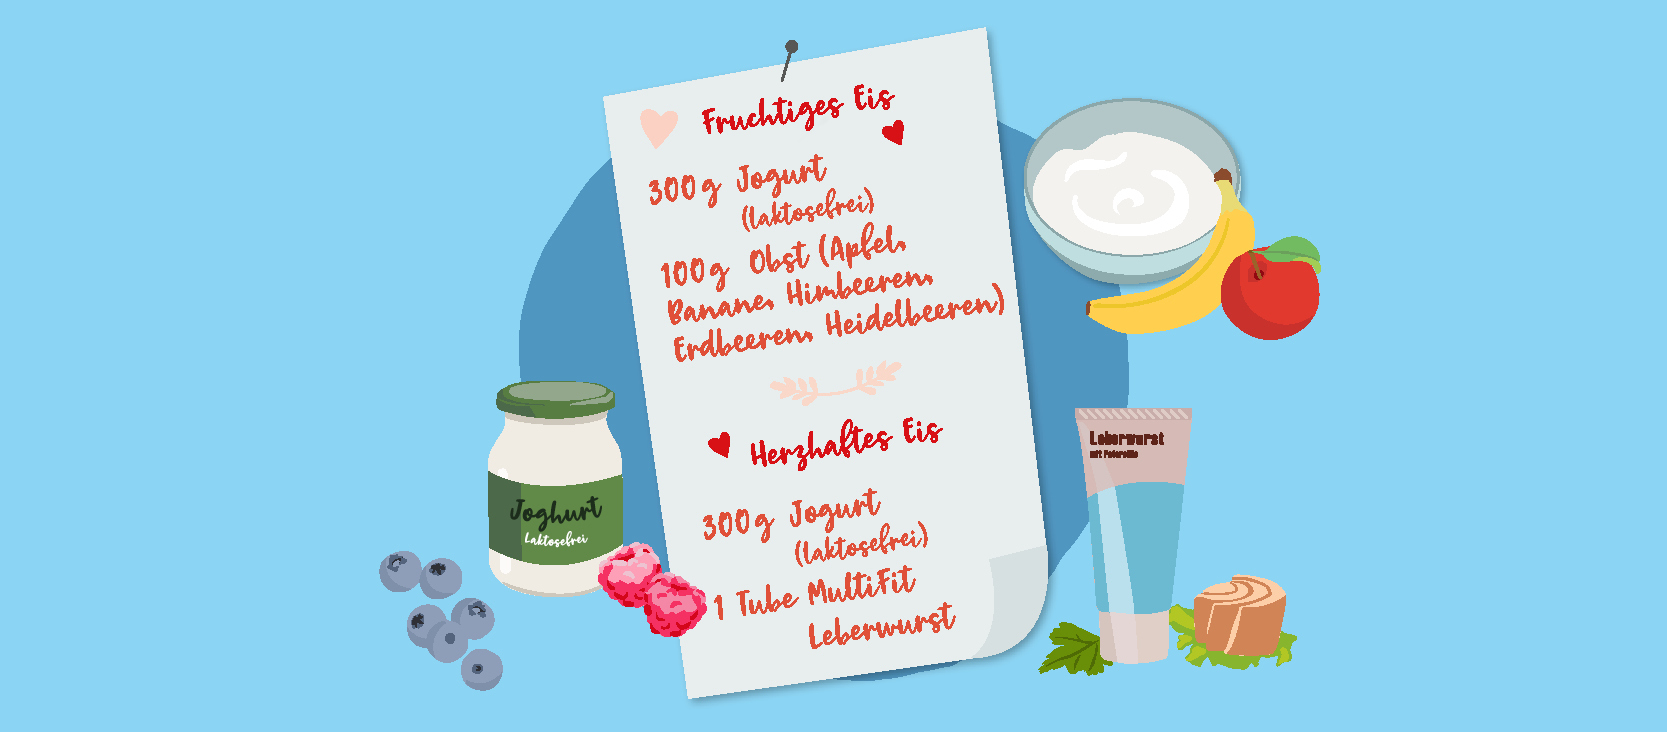 Fruchtiges Eis
300g Jogurt
(laktosefrei)
100g Obst (Apfel,
Banane, Himbeeren,
Erdbeeren, Heidelbeeren)
Herzhaftes Eis
300g Jogurt
(laktosefrei)
1 Tube MultiFit
Leberwurst
Joghurt
Laktosefrei
Leberwurst
mit Petersilie